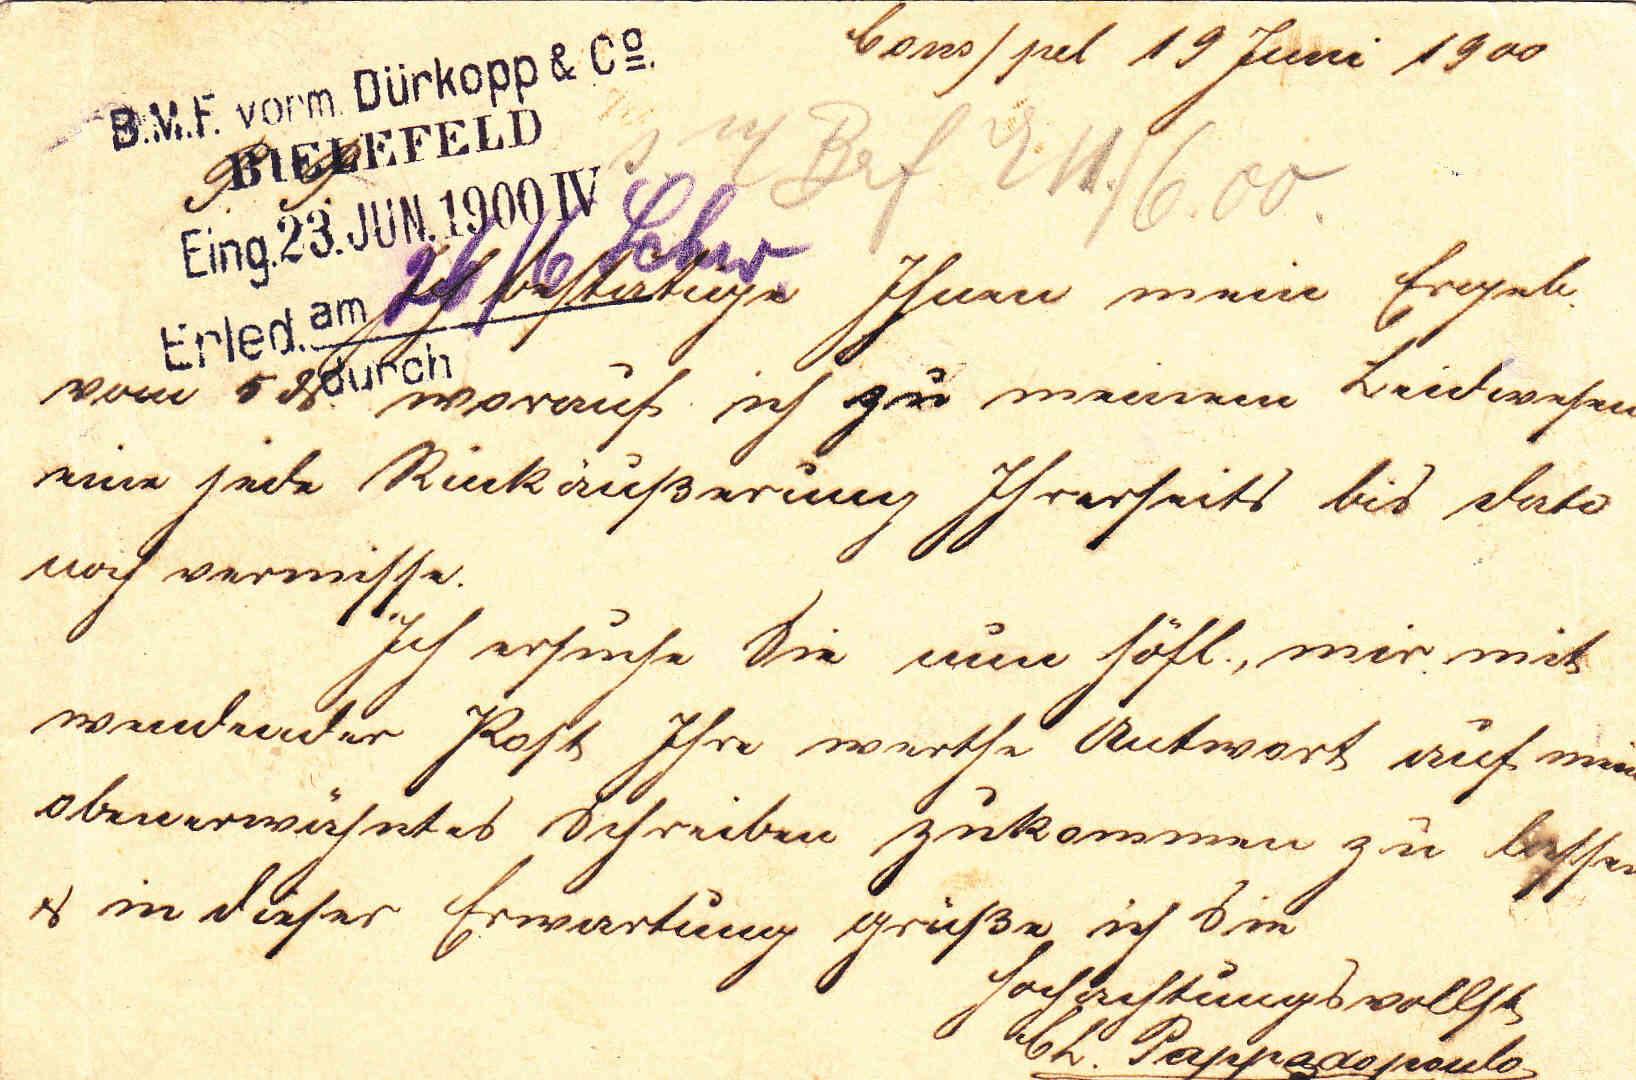 Cons/pel 19 Juni 1900
B.M.F. vorm. Dürkopp & Co.
BIELEFELD
Eing. 23. JUN. 1900 IV
Erled. am 26/6
durch
P. P.
Brf 11./6.00.
Ich bestätige Ihnen mein Ergeb.
vom 5 ds. worauf ich zu meinem Leidwesen
eine jede Rückäußerung Ihrerseits bis dato
noch vermisse.
Ich ersuche Sie nun höfl., mir mit
wendender Post Ihre werthe Antwort auf mein
obenerwähntes Schreiben zukommen zu lassen
& in dieser Erwartung grüße ich Sie
Hochachtungsvollst
Ch. Pappadopoulo